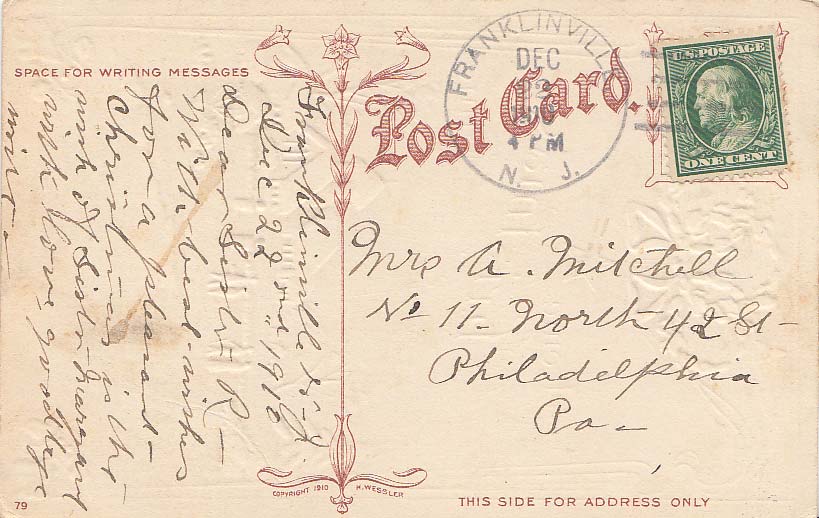 SPACE FOR WRITING MESSAGES
Post Card.
FRANKLINVILLE
DEC
22
4 PM
N. J.
U.S. POSTAGE
ONE CENT
Franklinville N. J.
Dec 22 nd 1910
Dear Sister R-
With best wishes
for a pleasant-
Christmas is the-
wish of Sister Margaret
with love, goodbye
Mrs A. Mitchell
No 11- North 42 St-
Philadelphia
Pa-
COPYRIGHT 1910 H. WESSLER
THIS SIDE FOR ADDRESS ONLY
79